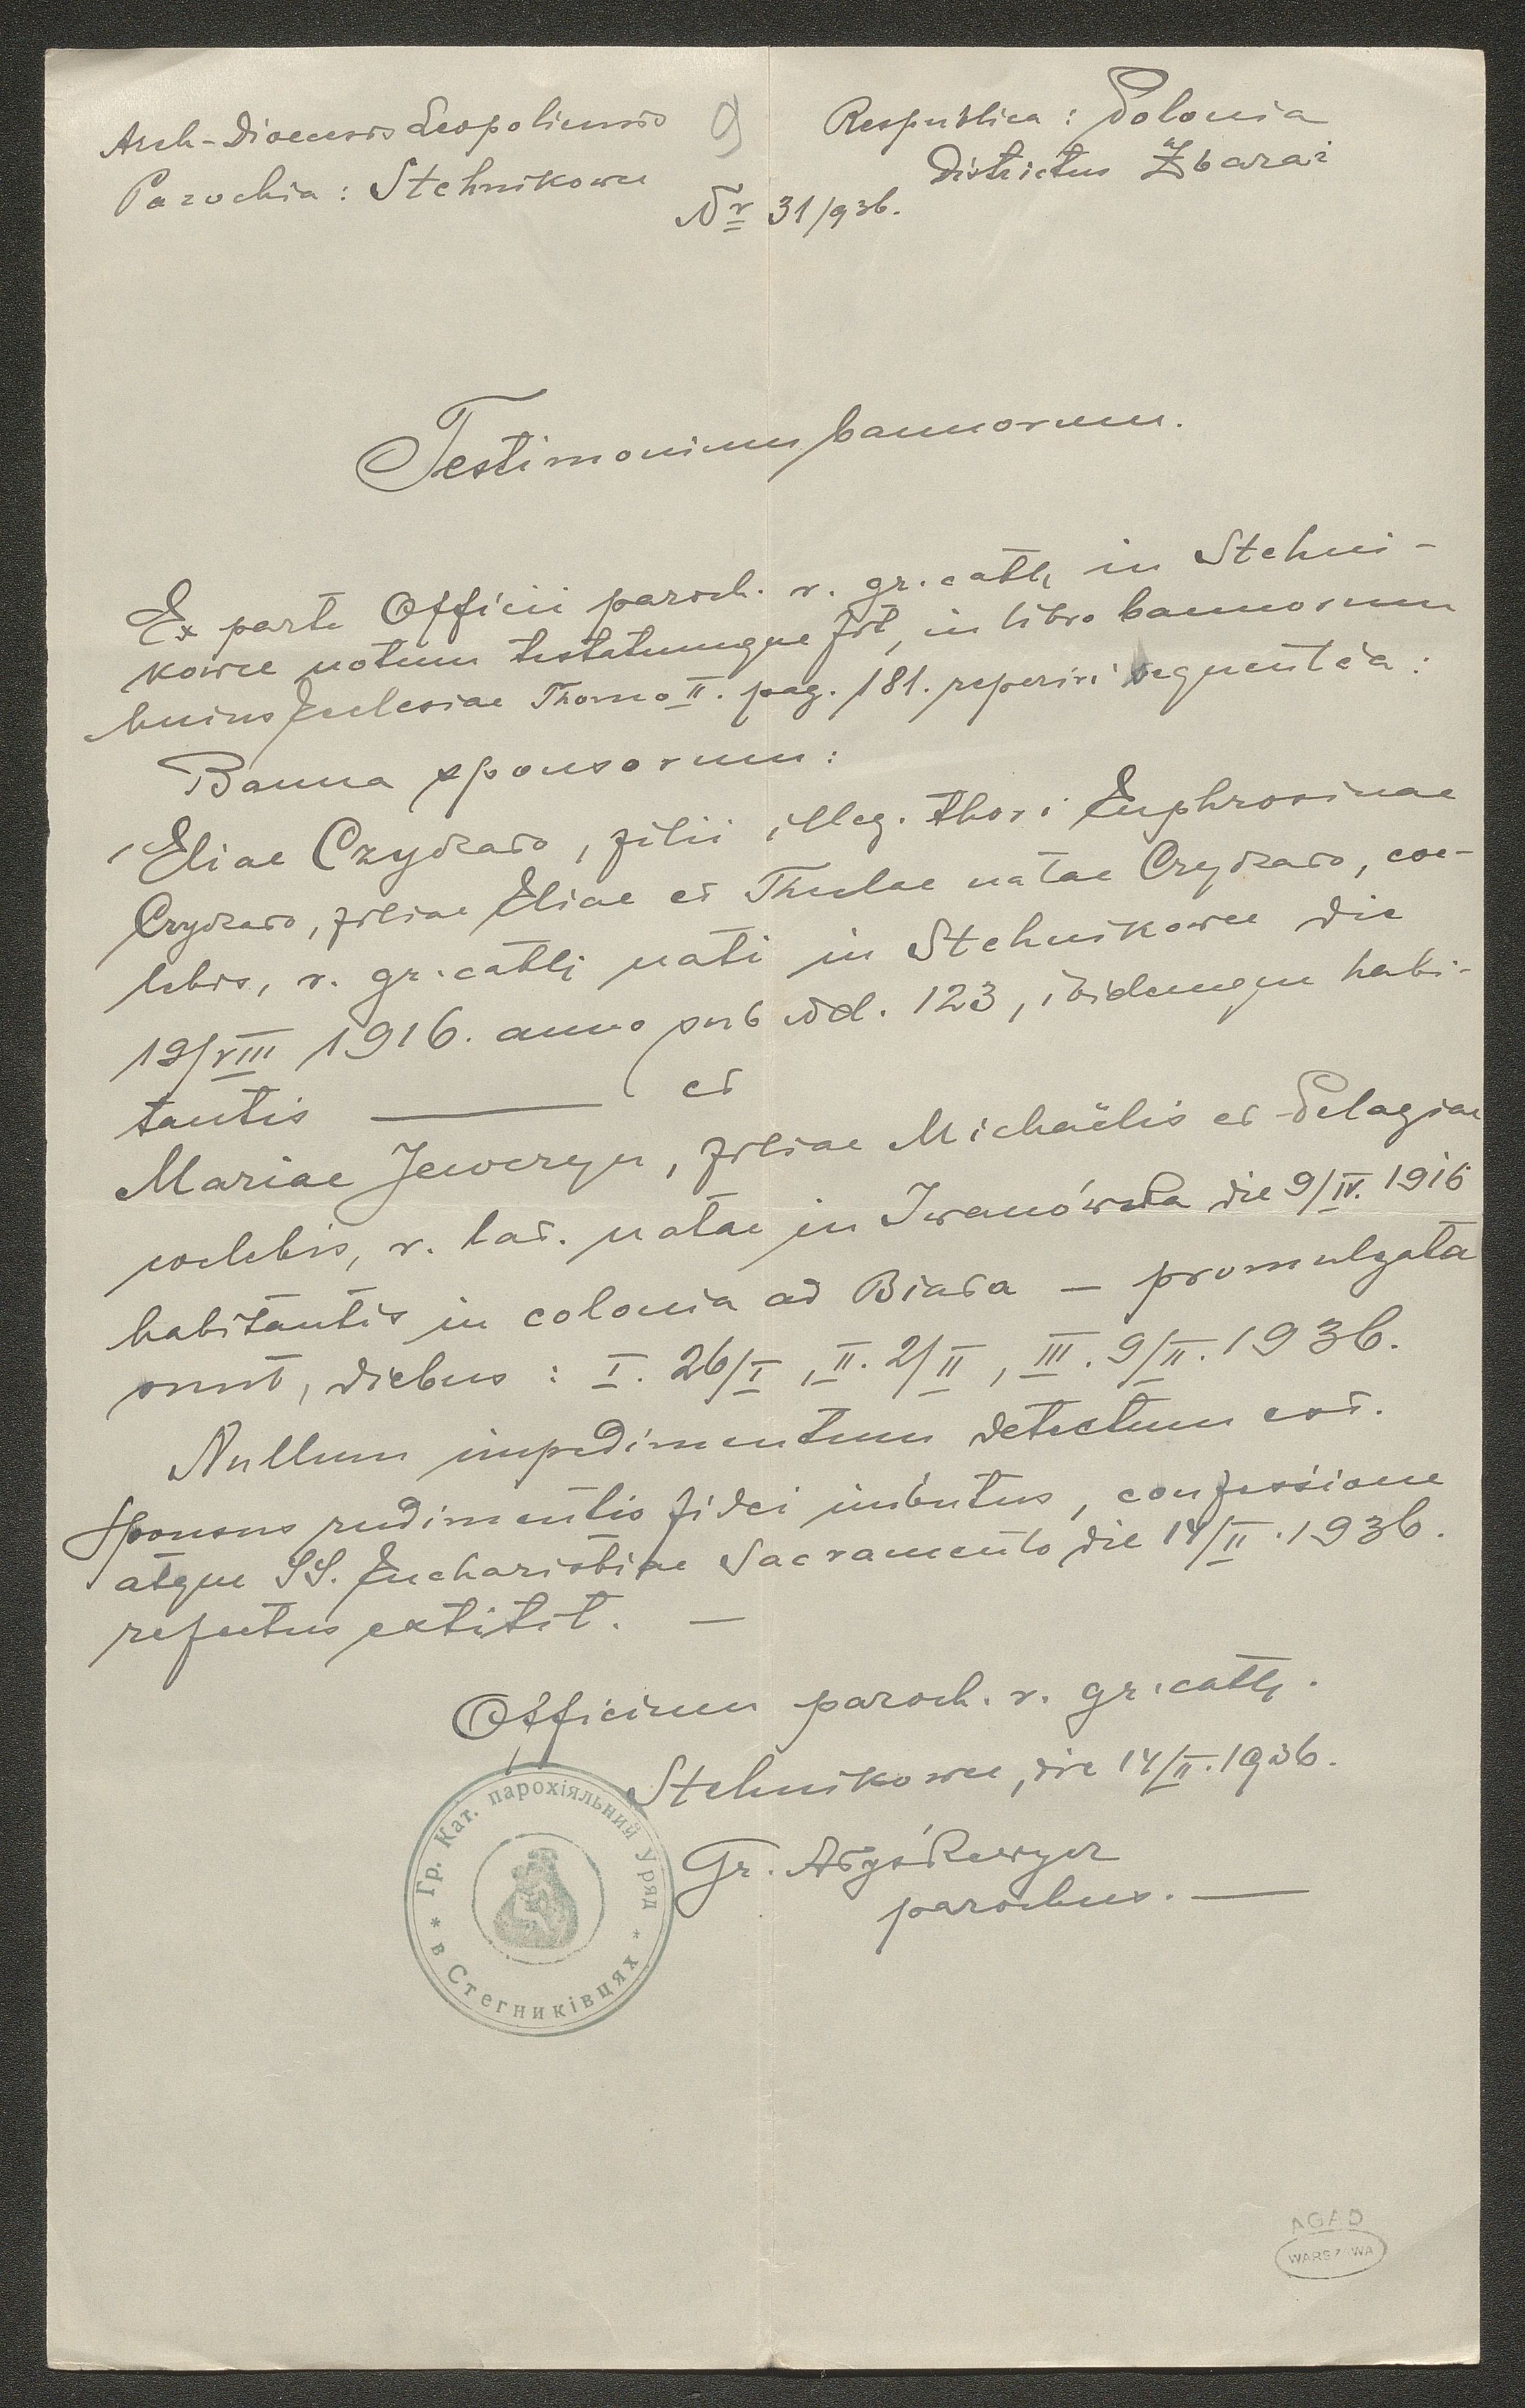 Arch-Dioecesis Leopoliensis
9
Respublica: Polonia
Parochia: Stehnikowce
Districtus Zbaraż
Nr 31/936.
Testimonium bannorum.
Ex parte Officii paroch. r. gr. cath. in Stehni-
kowce notum testatumque fit, in libro bannorum
huius Ecclesiae Thomo II. pag. 181. reperiri sequentia:
Banna sponsorum:
Eliae Czydzado, filii illeg. thori Euphrosinae
Czydzado, filiae Eliae et Theclae natae Czydzado, coe-
lebis, r. gr. cath. nati in Stehnikowce die
19/VIII 1916. anno sub Nd. 123, ibidemque habi-
tantis et
Mariae , filiae Michaëlis et Pelagiae
coelebis, r. lat. natae in Iwanówka die 9/IV. 1916
habitantis in colonia ad Biała — promulgata
sunt, diebus: I. 26/I, II. 2/II, III. 9/II. 1936.
Nullum impedimentum detectum est.
Sponsus rudimentis fidei imbutus, confessione
atque SS. Eucharistiae Sacramento die 14/II. 1936.
refectus extitit. —
Officium paroch. r. gr. cath.
Stehnikowce, die 14/II. 1936.
Gr.
parochus. —
Гр. Кат. парохіяльний Уряд
* в Стегниківцях *
AGAD
WARSZAWA